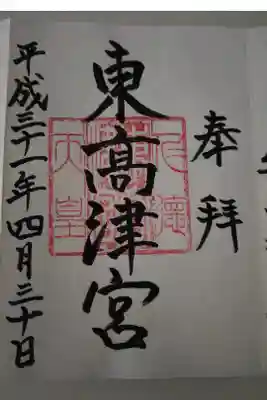 奉拝
東高津宮
平成三十一年四月三十日
仁徳
天皇